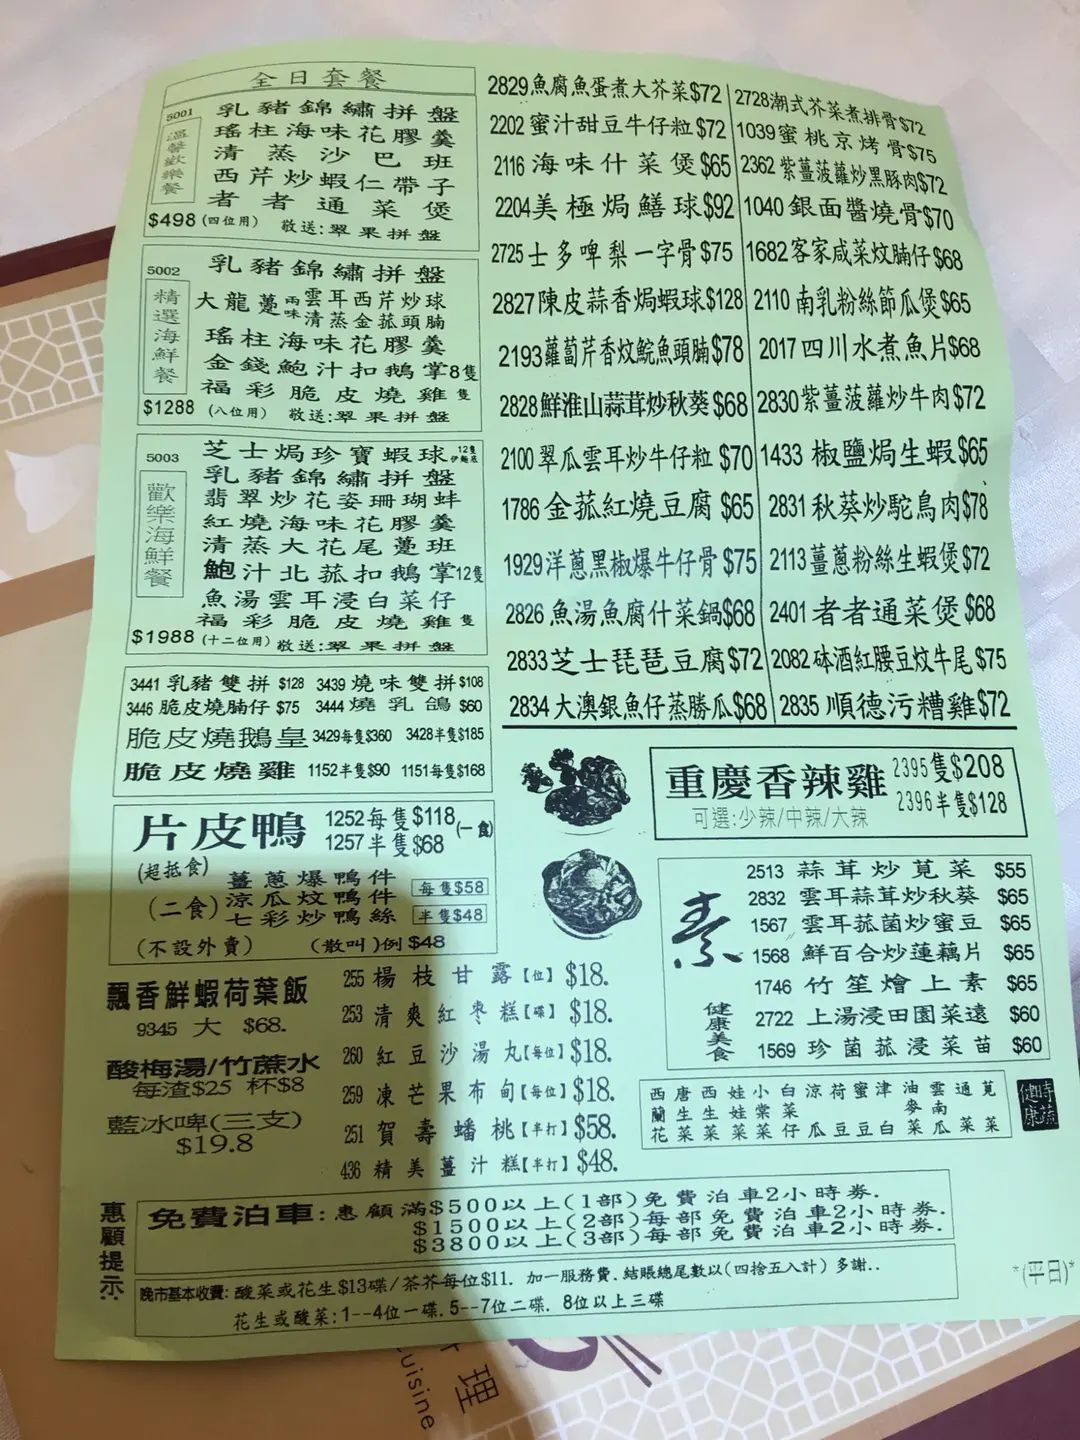 全日套餐
5001
溫馨歡樂餐
乳豬錦繡拼盤
瑤柱海味花膠羹
清蒸沙巴班
西芹炒蝦仁帶子
者者通菜煲
$498 (四位用) 敬送:翠果拼盤
5002
精選海鮮餐
乳豬錦繡拼盤
大龍躉兩味 雲耳西芹炒球
清蒸金菰頭腩
瑤柱海味花膠羹
金錢鮑汁扣鵝掌8隻
福彩脆皮燒雞隻
$1288 (八位用) 敬送:翠果拼盤
5003
歡樂海鮮餐
芝士焗珍寶蝦球12隻伊麵底
乳豬錦繡拼盤
翡翠炒花姿珊瑚蚌
紅燒海味花膠羹
清蒸大花尾躉班
鮑汁北菰扣鵝掌12隻
魚湯雲耳浸白菜仔
福彩脆皮燒雞隻
$1988 (十二位用) 敬送:翠果拼盤
3441 乳豬雙拼 $128 3439 燒味雙拼 $108
3446 脆皮燒腩仔 $75 3444 燒乳鴿 $60
脆皮燒鵝皇 3429每隻$360 3428半隻$185
脆皮燒雞 1152半隻$90 1151每隻$168
片皮鴨 1252每隻$118 (一食)
1257半隻$68
(超抵食)
(二食)
薑蔥爆鴨件
涼瓜炆鴨件
七彩炒鴨絲
每隻$58
半隻$48
(不設外賣) (散叫)例 $48
飄香鮮蝦荷葉飯
9345 大 $68.
酸梅湯/竹蔗水
每渣$25 杯$8
藍冰啤(三支)
$19.8
255 楊枝甘露【位】$18.
253 清爽紅枣糕【碟】$18.
260 紅豆沙湯丸【每位】$18.
259 凍芒果布甸【每位】$18.
251 賀壽蟠桃【半打】$58.
436 精美薑汁糕【半打】$48.
2829魚腐魚蛋煮大芥菜$72
2202 蜜汁甜豆牛仔粒 $72
2116 海味什菜煲$65
2204美極焗鱔球$92
2725士多啤梨一字骨$75
2827陳皮蒜香焗蝦球$128
2193蘿蔔芹香炆鯇魚頭腩$78
2828鮮淮山蒜茸炒秋葵 $68
2100 翠瓜雲耳炒牛仔粒 $70
1786 金菰紅燒豆腐 $65
1929洋蔥黑椒爆牛仔骨 $75
2826 魚湯魚腐什菜鍋$68
2833芝士琵琶豆腐$72
2834 大澳銀魚仔蒸勝瓜$68
2728潮式芥菜煮排骨$72
1039蜜桃京烤骨$75
2362 紫薑菠蘿炒黑豚肉$72
1040 銀面醬燒骨$70
1682客家咸菜炆腩仔 $68
2110 南乳粉絲節瓜煲$65
2017四川水煮魚片$68
2830紫薑菠蘿炒牛肉$72
1433 椒鹽焗生蝦$65
2831秋葵炒駝鳥肉$78
2113薑蔥粉絲生蝦煲$72
2401 者者通菜煲$68
2082砵酒紅腰豆炆牛尾 $75
2835 順德污糟雞$72
重慶香辣雞 2395隻$208
2396半隻$128
可選:少辣/中辣/大辣
素
健康美食
2513 蒜茸炒莧菜 $55
2832 雲耳蒜茸炒秋葵 $65
1567 雲耳菰菌炒蜜豆 $65
1568 鮮百合炒蓮藕片 $65
1746 竹笙燴上素 $65
2722 上湯浸田園菜遠 $60
1569 珍菌菰浸菜苗 $60
西唐西娃小白涼荷蜜津油雲通莧
蘭生生娃棠菜 麥南
花菜菜菜菜仔瓜豆豆白菜瓜菜菜
時蔬健康
惠顧提示:
免費泊車: 惠顧滿$500以上(1部)免費泊車2小時券.
$1500以上(2部)每部免費泊車2小時券.
$3800以上(3部)每部免費泊車2小時券.
晚市基本收費: 酸菜或花生$13碟/茶芥每位$11. 加一服務費. 結賬總尾數以(四捨五入計)多謝..
花生或酸菜:1--4位一碟. 5--7位二碟. 8位以上三碟
*(平日)*
理
uisine